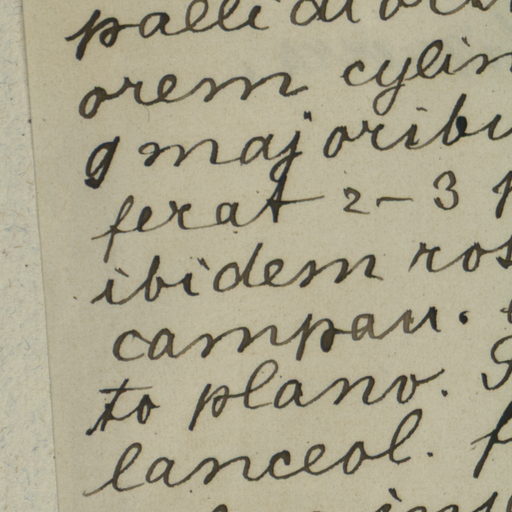 pallidior
orem cylin
g majoribu
ferat 2-3
ibidem ros
campan.
to plano. S
lanceol. f